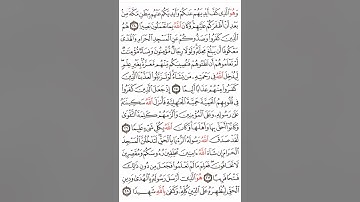 وَهُوَ ٱلَّذِي كَفَّ أَيْدِيَهُمْ عَنكُمْ وَأَيْدِيَكُمْ عَنْهُم بِبَطْنِ مَكَّةَ مِنۢ
بَعْدِ أَنْ أَظْفَرَكُمْ عَلَيْهِمْۚ وَكَانَ ٱللَّهُ بِمَا تَعْمَلُونَ بَصِيرًا ٢٤ هُمُ
ٱلَّذِينَ كَفَرُواْ وَصَدُّوكُمْ عَنِ ٱلْمَسْجِدِ ٱلْحَرَامِ وَٱلْهَدْيَ
مَعْكُوفًا أَن يَبْلُغَ مَحِلَّهُۥۚ وَلَوْلَا رِجَالٌ مُّؤْمِنُونَ وَنِسَآءٌ مُّؤْمِنَٰتٌ
لَّمْ تَعْلَمُوهُمْ أَن تَطَـُٔوهُمْ فَتُصِيبَكُم مِّنْهُم مَّعَرَّةٌۢ بِغَيْرِ عِلْمٍۖ
لِّيُدْخِلَ ٱللَّهُ فِي رَحْمَتِهِۦ مَن يَشَآءُۚ لَوْ تَزَيَّلُواْ لَعَذَّبْنَا ٱلَّذِينَ
كَفَرُواْ مِنْهُمْ عَذَابًا أَلِيمًا ٢٥ إِذْ جَعَلَ ٱلَّذِينَ كَفَرُواْ
فِي قُلُوبِهِمُ ٱلْحَمِيَّةَ حَمِيَّةَ ٱلْجَٰهِلِيَّةِ فَأَنزَلَ ٱللَّهُ سَكِينَتَهُۥ
عَلَىٰ رَسُولِهِۦ وَعَلَى ٱلْمُؤْمِنِينَ وَأَلْزَمَهُمْ كَلِمَةَ ٱلتَّقْوَىٰ
وَكَانُوٓاْ أَحَقَّ بِهَا وَأَهْلَهَاۚ وَكَانَ ٱللَّهُ بِكُلِّ شَيْءٍ عَلِيمًا ٢٦
لَّقَدْ صَدَقَ ٱللَّهُ رَسُولَهُ ٱلرُّءْيَا بِٱلْحَقِّۖ لَتَدْخُلُنَّ ٱلْمَسْجِدَ
ٱلْحَرَامَ إِن شَآءَ ٱللَّهُ ءَامِنِينَ مُحَلِّقِينَ رُءُوسَكُمْ وَمُقَصِّرِينَ
لَا تَخَافُونَۖ فَعَلِمَ مَا لَمْ تَعْلَمُواْ فَجَعَلَ مِن دُونِ ذَٰلِكَ
فَتْحًا قَرِيبًا ٢٧ هُوَ ٱلَّذِيٓ أَرْسَلَ رَسُولَهُۥ بِٱلْهُدَىٰ وَدِينِ
ٱلْحَقِّ لِيُظْهِرَهُۥ عَلَى ٱلدِّينِ كُلِّهِۦۚ وَكَفَىٰ بِٱللَّهِ شَهِيدًا ٢٨